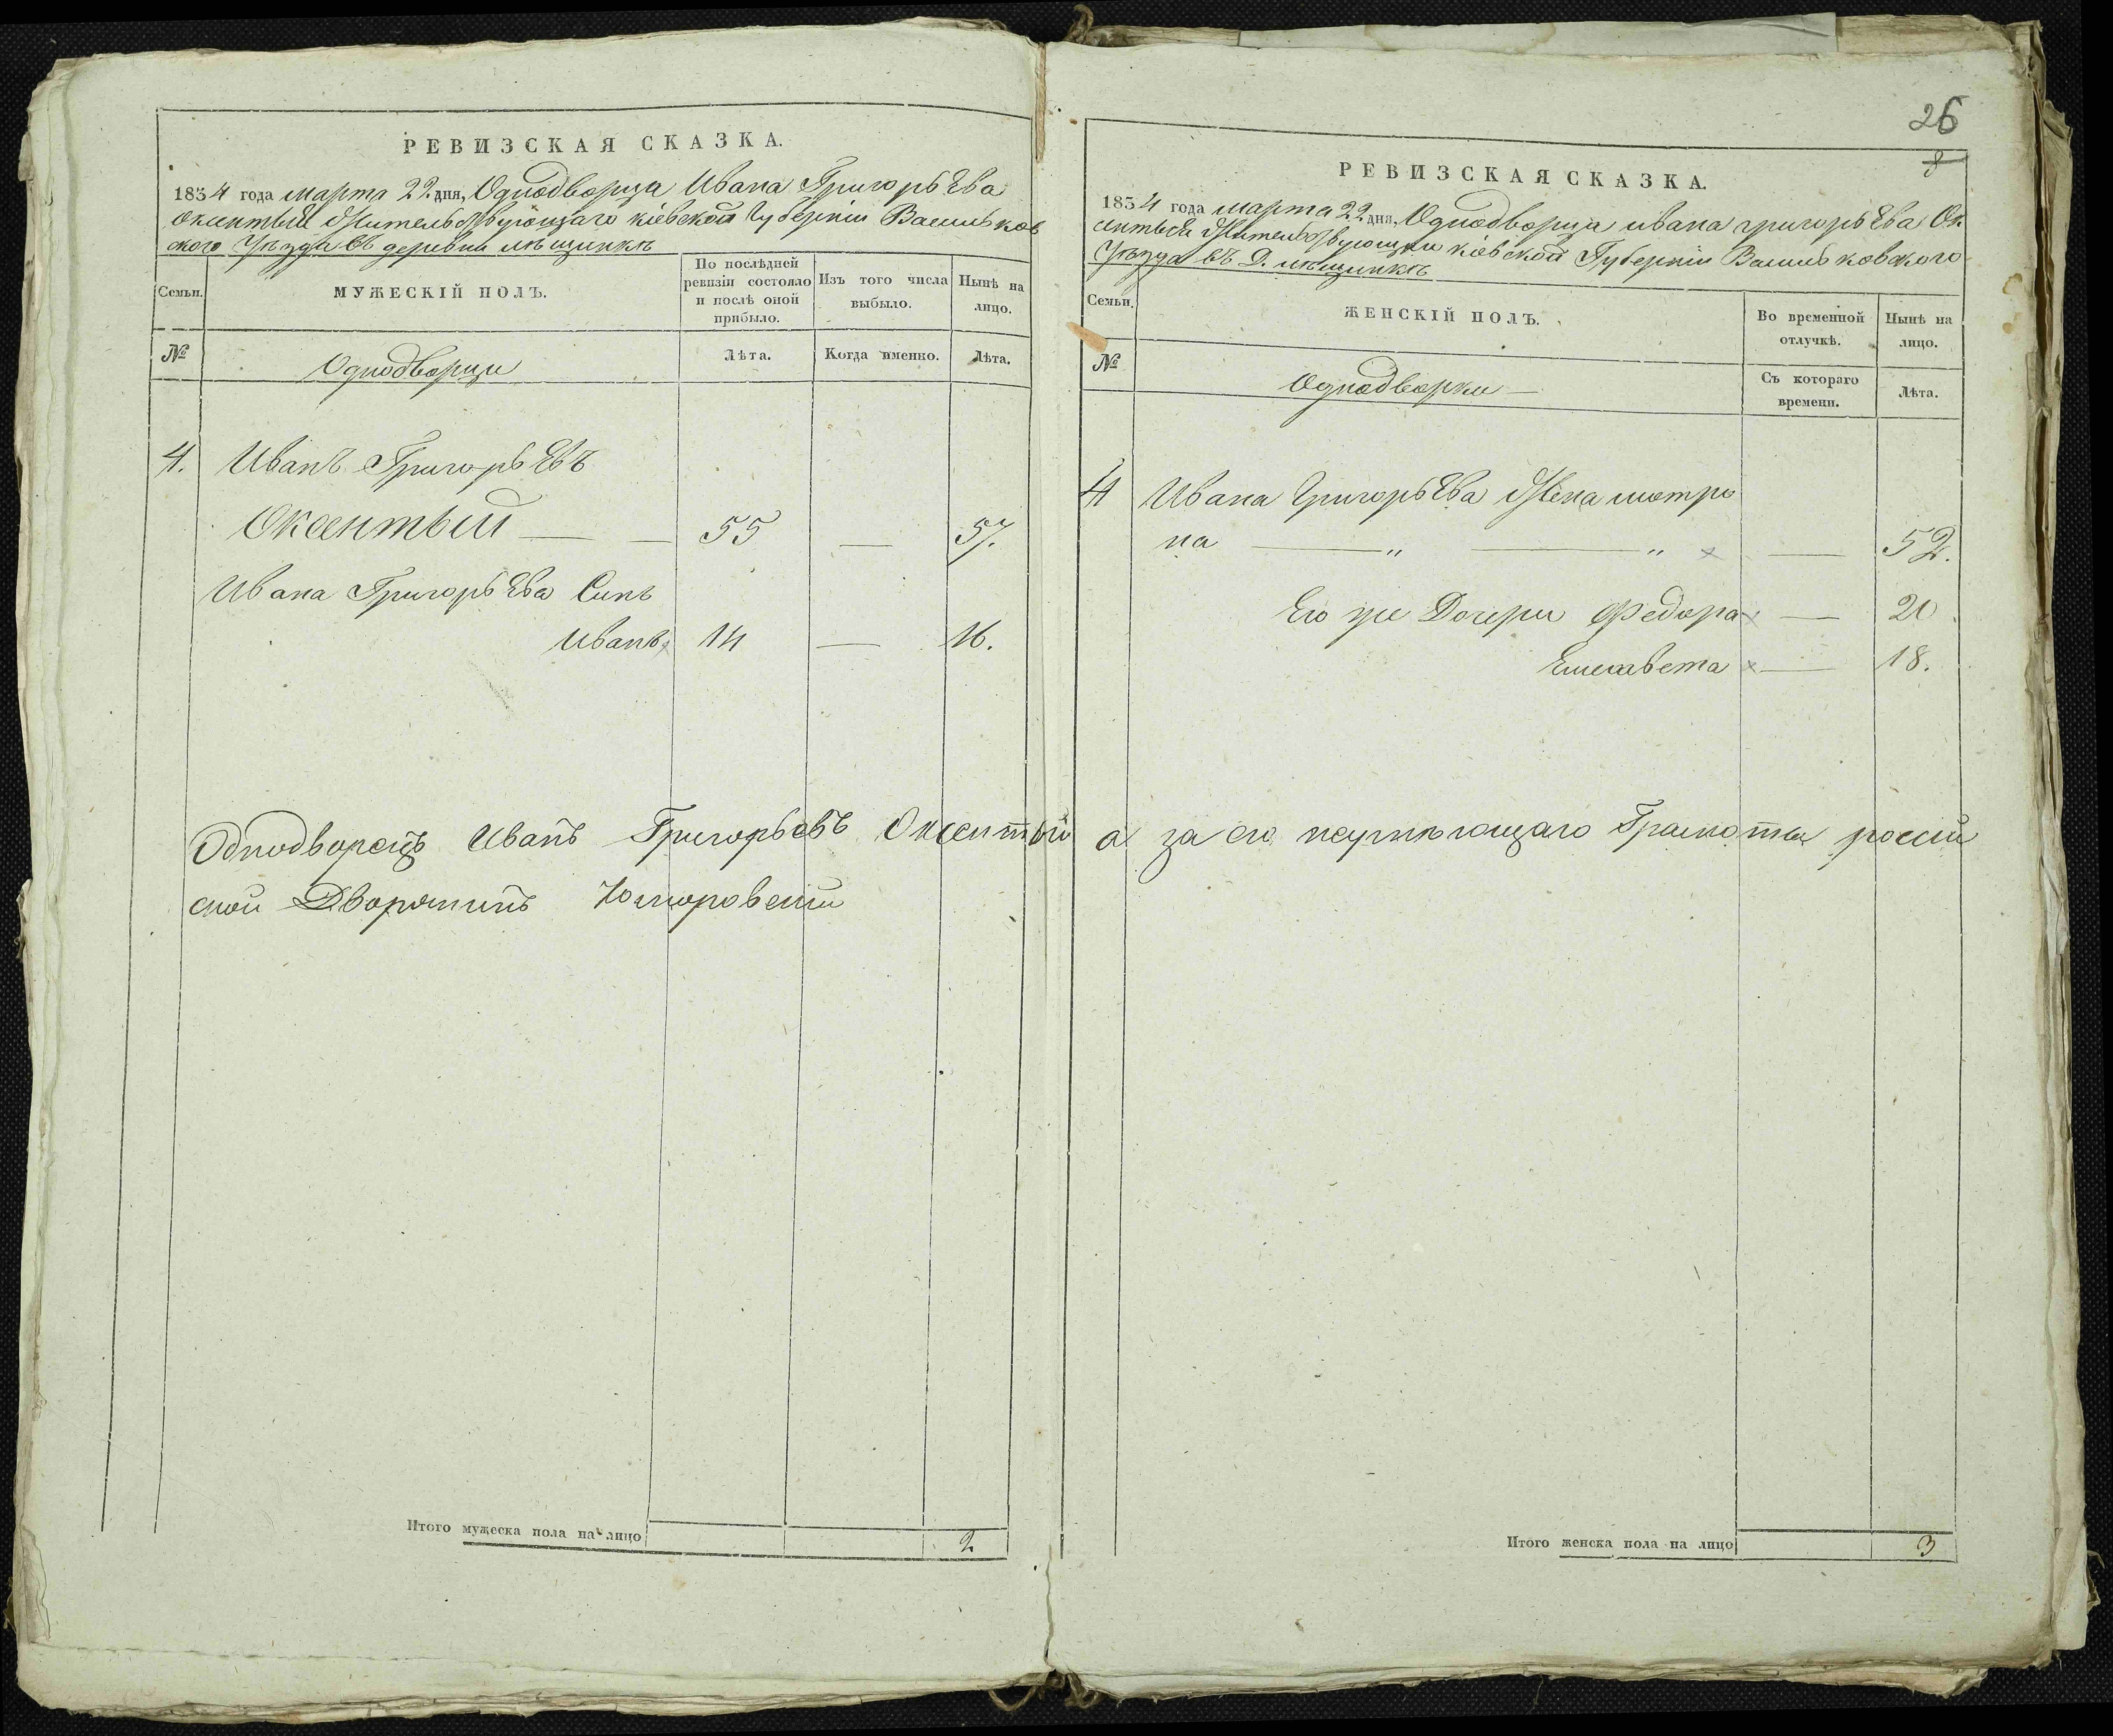 РЕВИЗСКАЯ СКАЗКА.
1834 года марта 22 дня, Однодворца Ивана Григорьева
Оксентый жительствующаго кіевской губерніи Васильков
ского Уезда въ деревни
Семьи.
МУЖЕСКІЙ ПОЛЪ.
По послѣдней
ревизіи состояло
и послѣ оной
прибыло.
Изъ того числа
выбыло.
Нынѣ на
лицо.
№
Однодворци
Лѣта.
Когда именно.
Лѣта.
4. Иванъ Григорьевъ
Оксентый — — 55 — 57.
Ивана Григорьева Синъ
Иванъ 14 — 16.
Однодворецъ Иванъ Григорьевъ Оксентый
ской Дворянинъ
Итого мужеска пола на лицо 2
26
8
РЕВИЗСКАЯ СКАЗКА.
1834 года марта 22 дня, Однодворца ивана григорьева Ок
сентый кіевской Губерніи Васильковского
Уезда въ Д.
Семьи.
ЖЕНСКІЙ ПОЛЪ.
Во временной
отлучкѣ.
Нынѣ на
лицо.
№
Однодворки —
Съ котораго
времени.
Лѣта.
4 Ивана Григорьева жена мотро
на — „ — „ × — 52.
Его же Дочери Федора × — 20
Елисавета × — 18.
а за его неумеющаго Грамоты россій
Итого женска пола на лицо 3